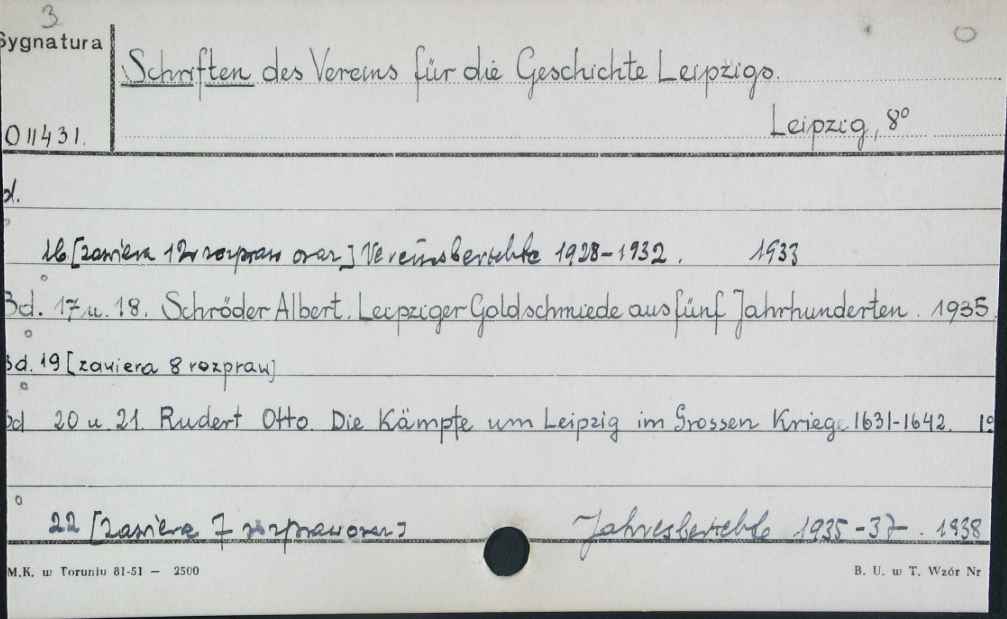 3
Sygnatura
Schriften des Vereins für die Geschichte Leipzigs.
Leipzig, 8°
011431.
d.
16 [zawiera 12 rozpraw oraz] Vereinsberichte 1928-1932. 1933
Bd. 17 u. 18. Schröder Albert. Leipziger Goldschmiede aus fünf Jahrhunderten. 1935
Bd. 19 [zawiera 8 rozpraw]
Bd 20 u 21. Rudert Otto. Die Kämpfe um Leipzig im Grossen Kriege 1631-1642. 19
22 [zawiera 7 rozpraw oraz] Jahresberichte 1935-37. 1938
M.K. w Toruniu 81-51 — 2500
B. U. w T. Wzór Nr